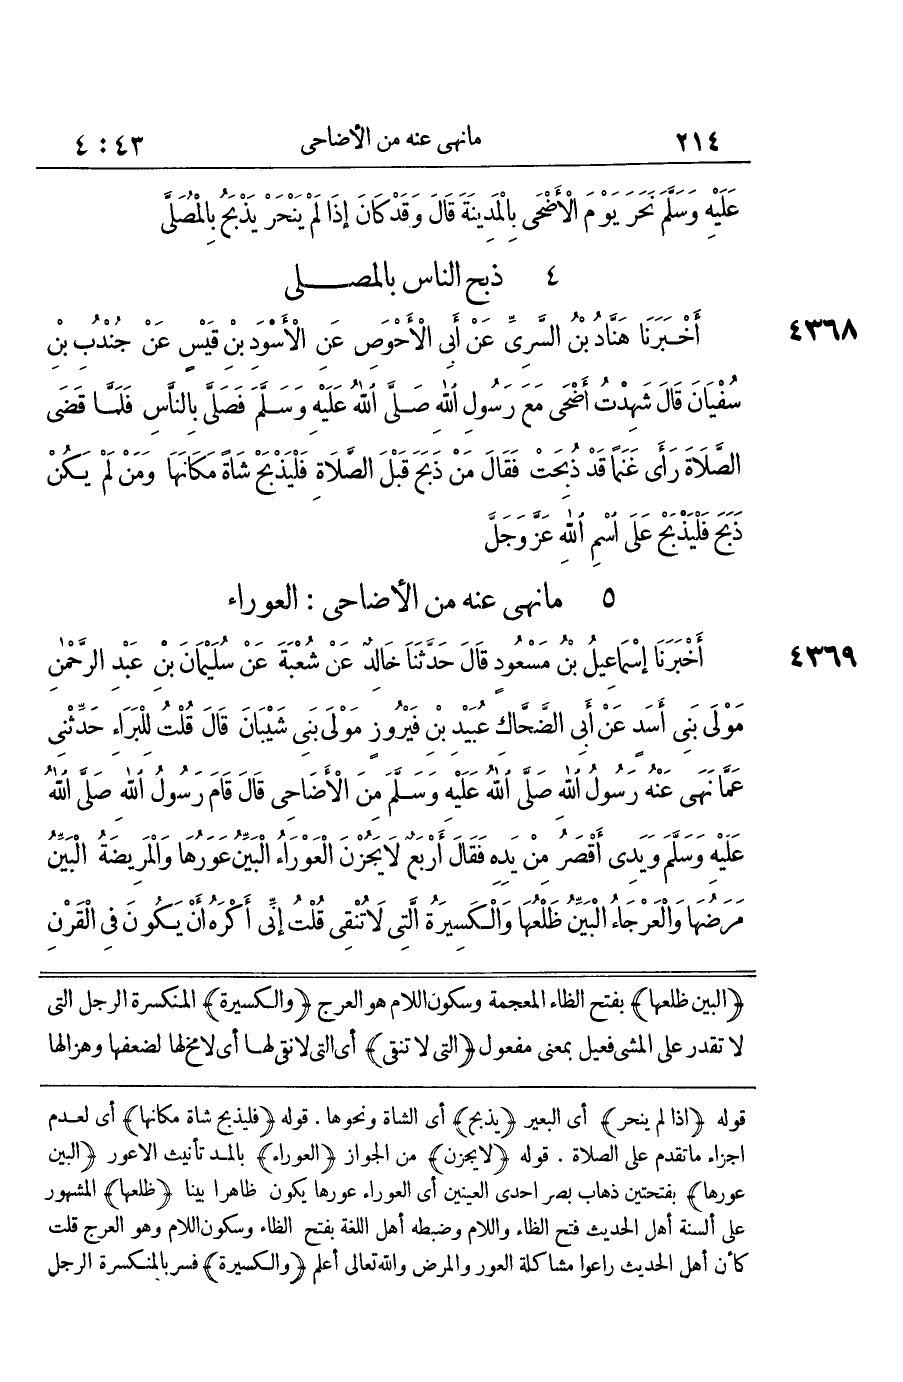 ٢١٤ مانهى عنه من الأضاحى ٤٣ : ٤
عَلَيْهِ وَسَلَّمَ نَحَرَ يَوْمَ الْأَضْحَى بِالْمَدِينَةِ قَالَ وَقَدْ كَانَ إِذَا لَمْ يَنْحَرْ يَذْبَحُ بِالْمُصَلَّى
٤ ذبح الناس بالمصلى
٤٣٦٨ أَخْبَرَنَا هَنَّادُ بْنُ السَّرِىِّ عَنْ أَبِى الْأَحْوَصِ عَنِ الْأَسْوَدِ بْنِ قَيْسٍ عَنْ جُنْدُبِ بْنِ
سُفْيَانَ قَالَ شَهِدْتُ أَضْحًى مَعَ رَسُولِ اللهِ صَلَّى اللهُ عَلَيْهِ وَسَلَّمَ فَصَلَّى بِالنَّاسِ فَلَمَّا قَضَى
الصَّلَاةَ رَأَى غَنَمًا قَدْ ذُبِحَتْ فَقَالَ مَنْ ذَبَحَ قَبْلَ الصَّلَاةِ فَلْيَذْبَحْ شَاةً مَكَانَهَا وَمَنْ لَمْ يَكُنْ
ذَبَحَ فَلْيَذْبَحْ عَلَى اسْمِ اللهِ عَزَّ وَجَلَّ
٥ مانهى عنه من الأضاحى : العوراء
٤٣٦٩ أَخْبَرَنَا إِسْمَاعِيلُ بْنُ مَسْعُودٍ قَالَ حَدَّثَنَا خَالِدٌ عَنْ شُعْبَةَ عَنْ سُلَيْمَانَ بْنِ عَبْدِ الرَّحْمٰنِ
مَوْلَى بَنِى أَسَدٍ عَنْ أَبِى الضَّحَّاكِ عُبَيْدِ بْنِ فَيْرُوزٍ مَوْلَى بَنِى شَيْبَانَ قَالَ قُلْتُ لِلْبَرَاءِ حَدِّثْنِى
عَمَّا نَهَى عَنْهُ رَسُولُ اللهِ صَلَّى اللهُ عَلَيْهِ وَسَلَّمَ مِنَ الْأَضَاحِى قَالَ قَامَ رَسُولُ اللهِ صَلَّى اللهُ
عَلَيْهِ وَسَلَّمَ وَيَدِى أَقْصَرُ مِنْ يَدِهِ فَقَالَ أَرْبَعٌ لَا يَجُزْنَ الْعَوْرَاءُ الْبَيِّنُ عَوَرُهَا وَالْمَرِيضَةُ الْبَيِّنُ
مَرَضُهَا وَالْعَرْجَاءُ الْبَيِّنُ ظَلْعُهَا وَالْكَسِيرَةُ الَّتِى لَا تُنْقِى قُلْتُ إِنِّى أَكْرَهُ أَنْ يَكُونَ فِى الْقَرْنِ
﴿البين ظلعها﴾ بفتح الظاء المعجمة وسكون اللام هو العرج ﴿والكسيرة﴾ المنكسرة الرجل التى
لا تقدر على المشى فعيل بمعنى مفعول ﴿التى لا تنقى﴾ أى التى لا نقى لهـا أى لا مخ لها لضعفها وهزالها
قوله ﴿اذا لم ينحر﴾ أى البعير ﴿يذبح﴾ أى الشاة ونحوها . قوله ﴿فليذبح شاة مكانها﴾ أى لعـدم
اجزاء ماتقدم على الصلاة . قوله ﴿لايجزن﴾ من الجواز ﴿العوراء﴾ بالمـد تأنيث الاعور ﴿البين
عورها﴾ بفتحتين ذهاب بصر احدى العينين أى العوراء عورها يكون ظاهرا بينا ﴿ظلعها﴾ المشهور
على ألسنة أهل الحديث فتح الظاء واللام وضبطه أهل اللغة بفتح الظاء وسكون اللام وهو العرج قلت
كأن أهل الحديث راعوا مشاكلة العور والمرض والله تعالى أعلم ﴿والـكسيرة﴾ فسر بالمنكسرة الرجل